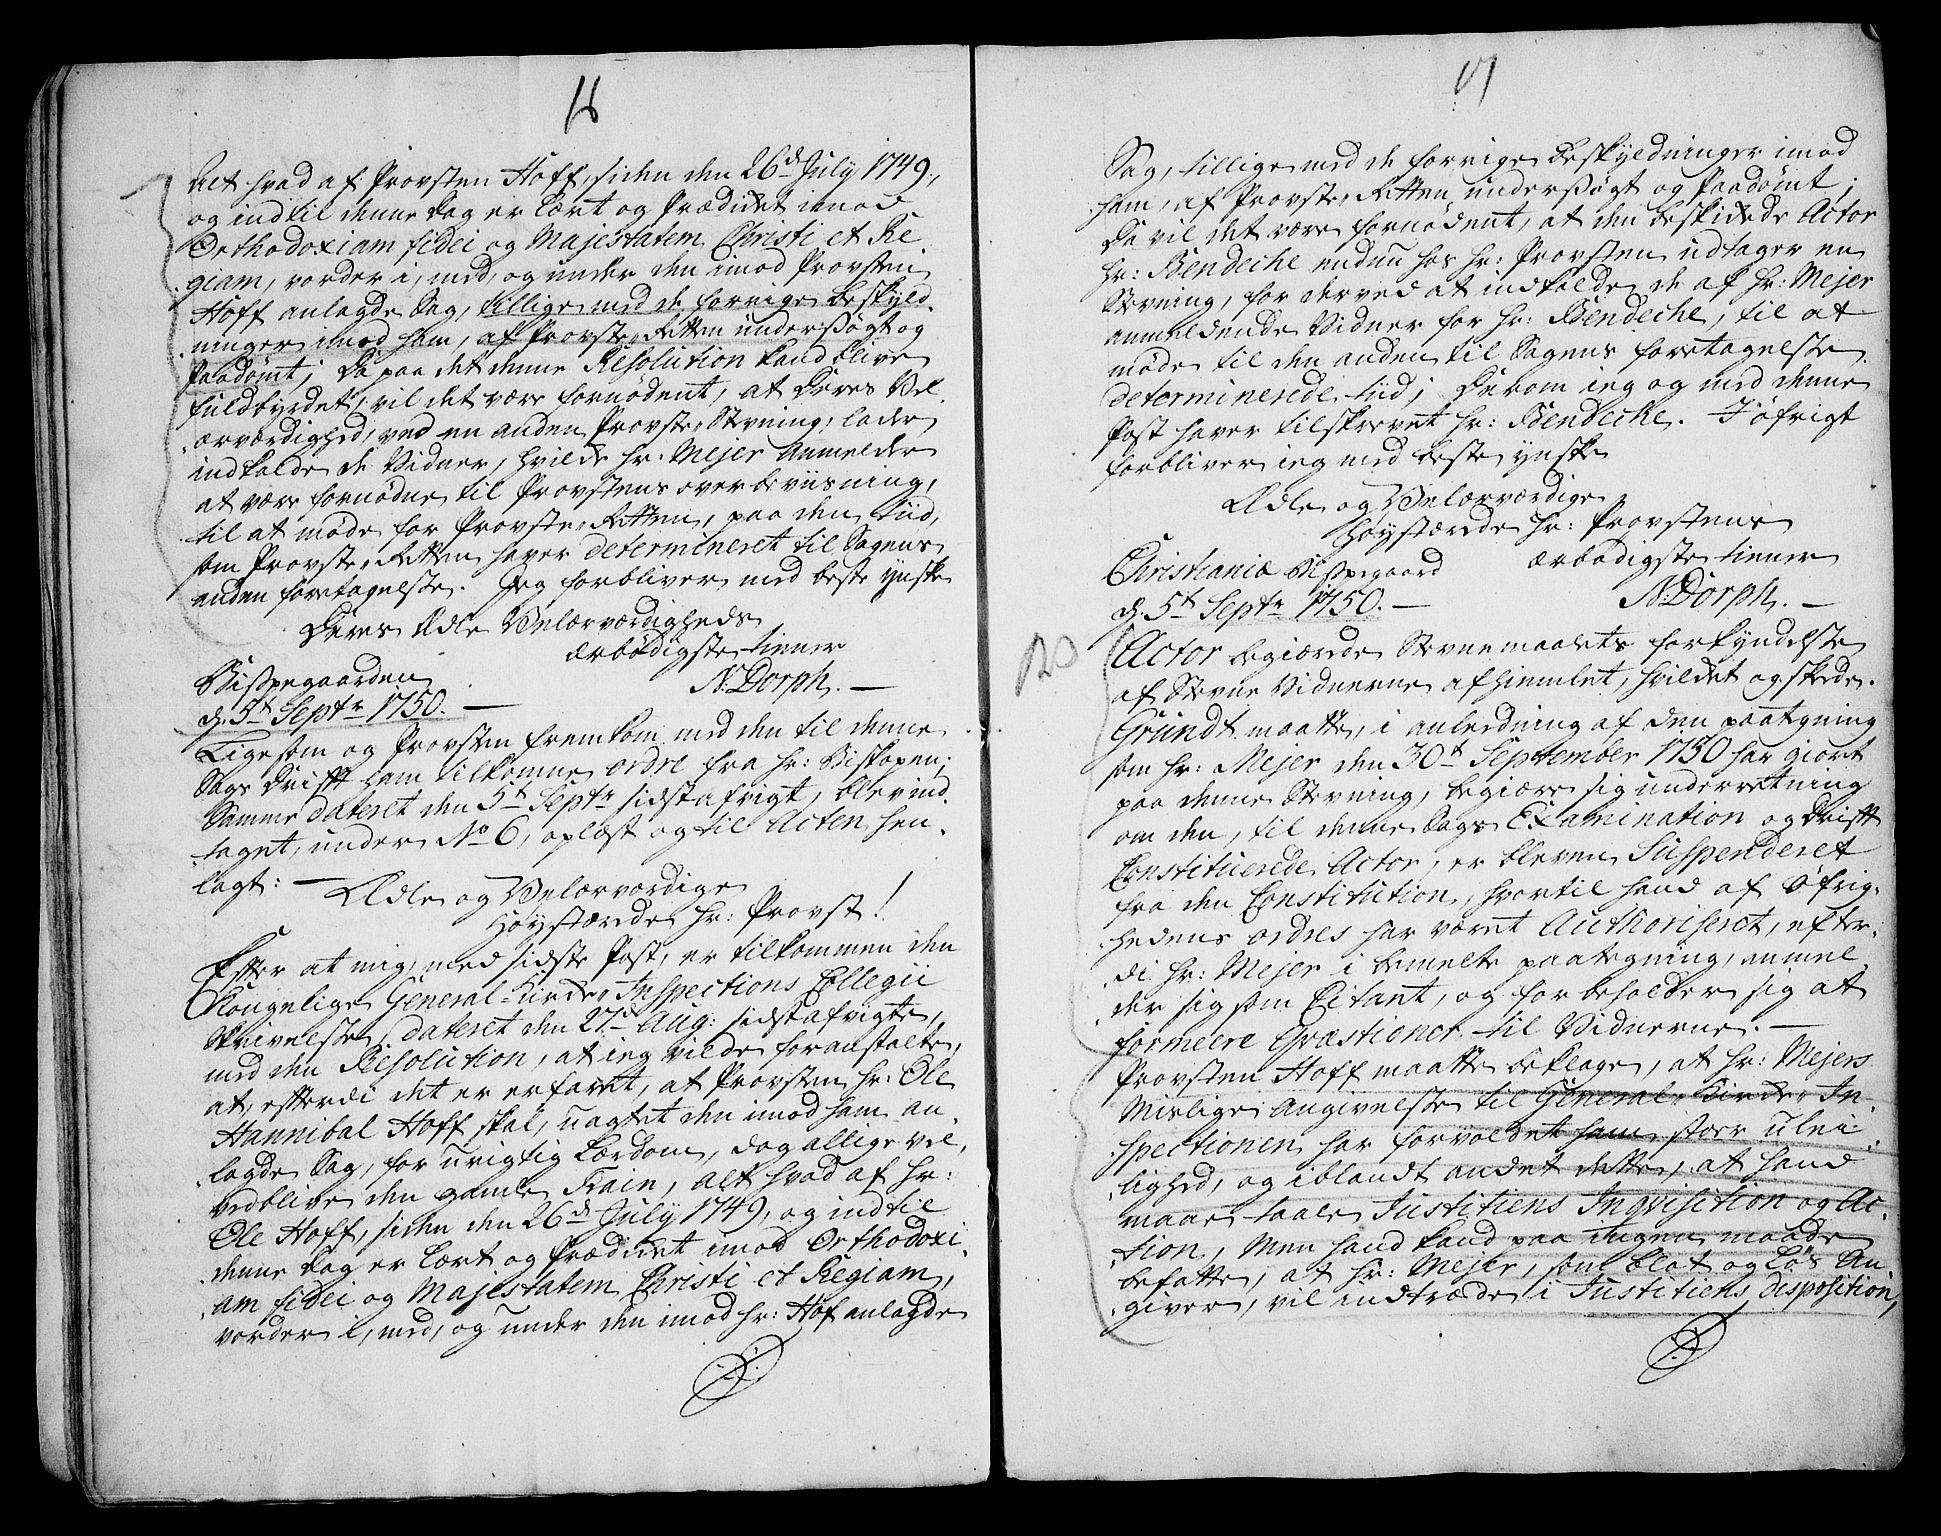 16
Alt hvad af Provsten Hoff, siden den 26d July 1749.,
og indtil denne Dag er Lært og Prædicket imod
Orthodoxiam fidei og Majestatem Christi et Re-
giam, vorder i, med, og under den imod Provsten
Hoff anlagde Sag, tillige med de forrige beskyld-
ninger imod ham, af Provste-Retten undersøgt og
Paadømt; Da paa det denne Resolution kand blive
fuldbyrdet, vil det være fornødent, at Deres Vel-
ærværdighed, ved en anden Provste-Stevning, lader
indkalde de Vidner, hvilcke hr. Mejer Anmelder
at være fornødne til Provstens overbeviisning,
til at møde for Provste-Retten, paa den tiid,
som Provste-Retten haver determineret til Sagens
anden foretagelse. Jeg forbliver med beste ynske
Deres Ædle Velærværdigheds
ærbødigste tiener
Bispegaarden
N. Dorph. —
d. 5t Septr 1750. —
Ligesom og Provsten fremkom med den til denne
Sags Drift ham tilkomne ordre fra hr: Biskopen;
Samme dateret den 5t Septr sidstafvigt, blev ind-
taget, under No 6, oplæst og til Acten hen-
lagt: —
Ædle og Velærværdige
Høystærede hr: Provst!
Efter at mig, med sidste Post, er tilkommen den
Kongelige General-Kircke-Inspections Collegii
Skrivelse, dateret den 27d Aug: sidstafvigte,
med den Resolution, at ieg vilde foranstalte,
at, efterdi det er erfaret, at Provsten hr: Ole
Hannibal Hoff skal, uagtet den imod ham an-
lagde Sag, for urigtig Lærdom, dog allige vel,
vedblive den gamle Train, alt hvad af hr:
Ole Hoff, siden den 26d July 1749, og indtil
denne Dag er Lært og Prædicket imod Orthodoxi-
am fidei og Majestatem Christi et Regiam,
vorder i, med, og under den imod hr: Hof anlagde
17
Sag, tillige med de forrige beskyldninger imod
ham, af Provste-Retten undersøgt og Paadømt;
Da vil det være fornødent, at den beskickede Actor
hr: Bendeche endnu hos hr: Provsten udtager en
Stevning, for derved at indkalde de af hr: Mejer
anmeldende Vidner for hr: Bendeche, til at
møde til den anden til Sagens foretagelse
determinerede tiid; Derom ieg og med denne
Post haver tilskrevet hr: Bendecke. I øfrigt
forbliver ieg med beste ynske
Ædle og Velærværdige
Høystærede hr: Provstens
ærbødigste tiener
Christianiæ Bispegaard
N: Dorph. —
d. 5t Septr 1750. —
Actor begiærede Stevnemaalets forkyndelse
af Stevne Vidnerne afhiemlet, hvilcket og skede.
Grundt maatte, i anledning af den paategning
som hr: Mejer den 30t September 1750 har giort
paa denne Stevning, begiære sig underretning
om den, til denne Sags Examination og Drift
Constituerede Actor, er bleven Suspenderet
fra den Constitution, hvortil hand af Øfrig-
hedens ordres har været Authoriseret, efter-
di hr: Mejer i bemelte paategning, anmel-
der sig som Citant, og forbeholder sig at
formeere Qvæstioner til Vidnerne. —
Provsten Hoff maatte beklage, at hr: Mejers
Mislige Angivelse til General-Kircke-In-
spectionen har forvoldet ham stoer ulei-
lighed, og iblandt andet dette, at hand
maae taale Justitiens Inqvisition og Ac-
tion, Men hand kand paa ingen maade
befatte, at hr: Mejer, som blot og Løs An-
giver, vil indtræde i Justitiens disposition,